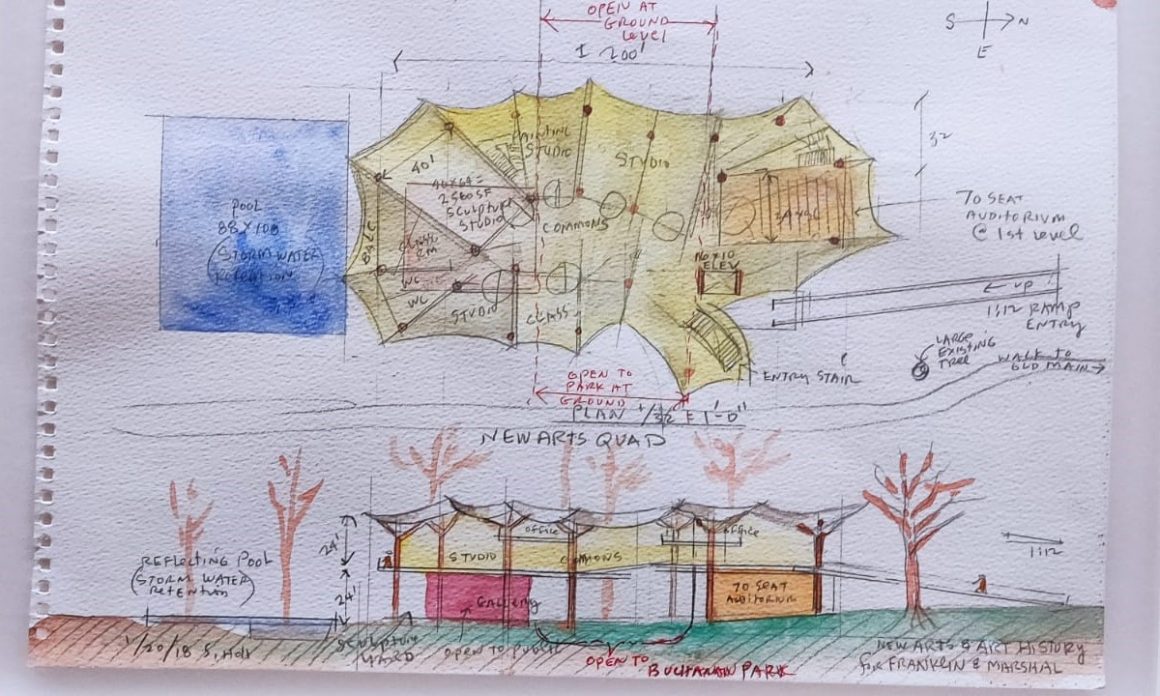 OPEN AT
GROUND
LEVEL
± 200'
S
N
E
32
PAINTING
STUDIO
STUDIO
40'
40x64=
2560 SF
SCULPTURE
STUDIO
COMMONS
POOL
88X108
(STORM WATER
RETENTION)
WC
WC
STUDIO
CLASS
16x10
ELEV
70 SEAT
AUDITORIUM
@ 1st LEVEL
UP
1:12 RAMP
ENTRY
LARGE
EXISTING
TREE
WALK TO
OLD MAIN
ENTRY STAIR
OPEN TO
PARK AT
GROUND
PLAN 1/32" = 1'-0"
NEW ARTS QUAD
OFFICE
OFFICE
24'
STUDIO
COMMONS
1:12
REFLECTING POOL
(STORM WATER
RETENTION)
24'
GALLERY
70 SEAT
AUDITORIUM
1/20/18 S. Holl
SCULPTURE
YARD
OPEN TO PUBLIC
OPEN TO BUCHANAN PARK
NEW ARTS & ART HISTORY
for FRANKLIN & MARSHAL